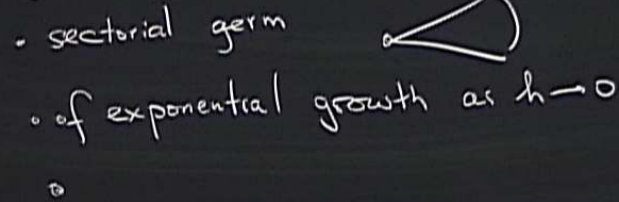 • sectorial germ
• of exponential growth as h → 0
•